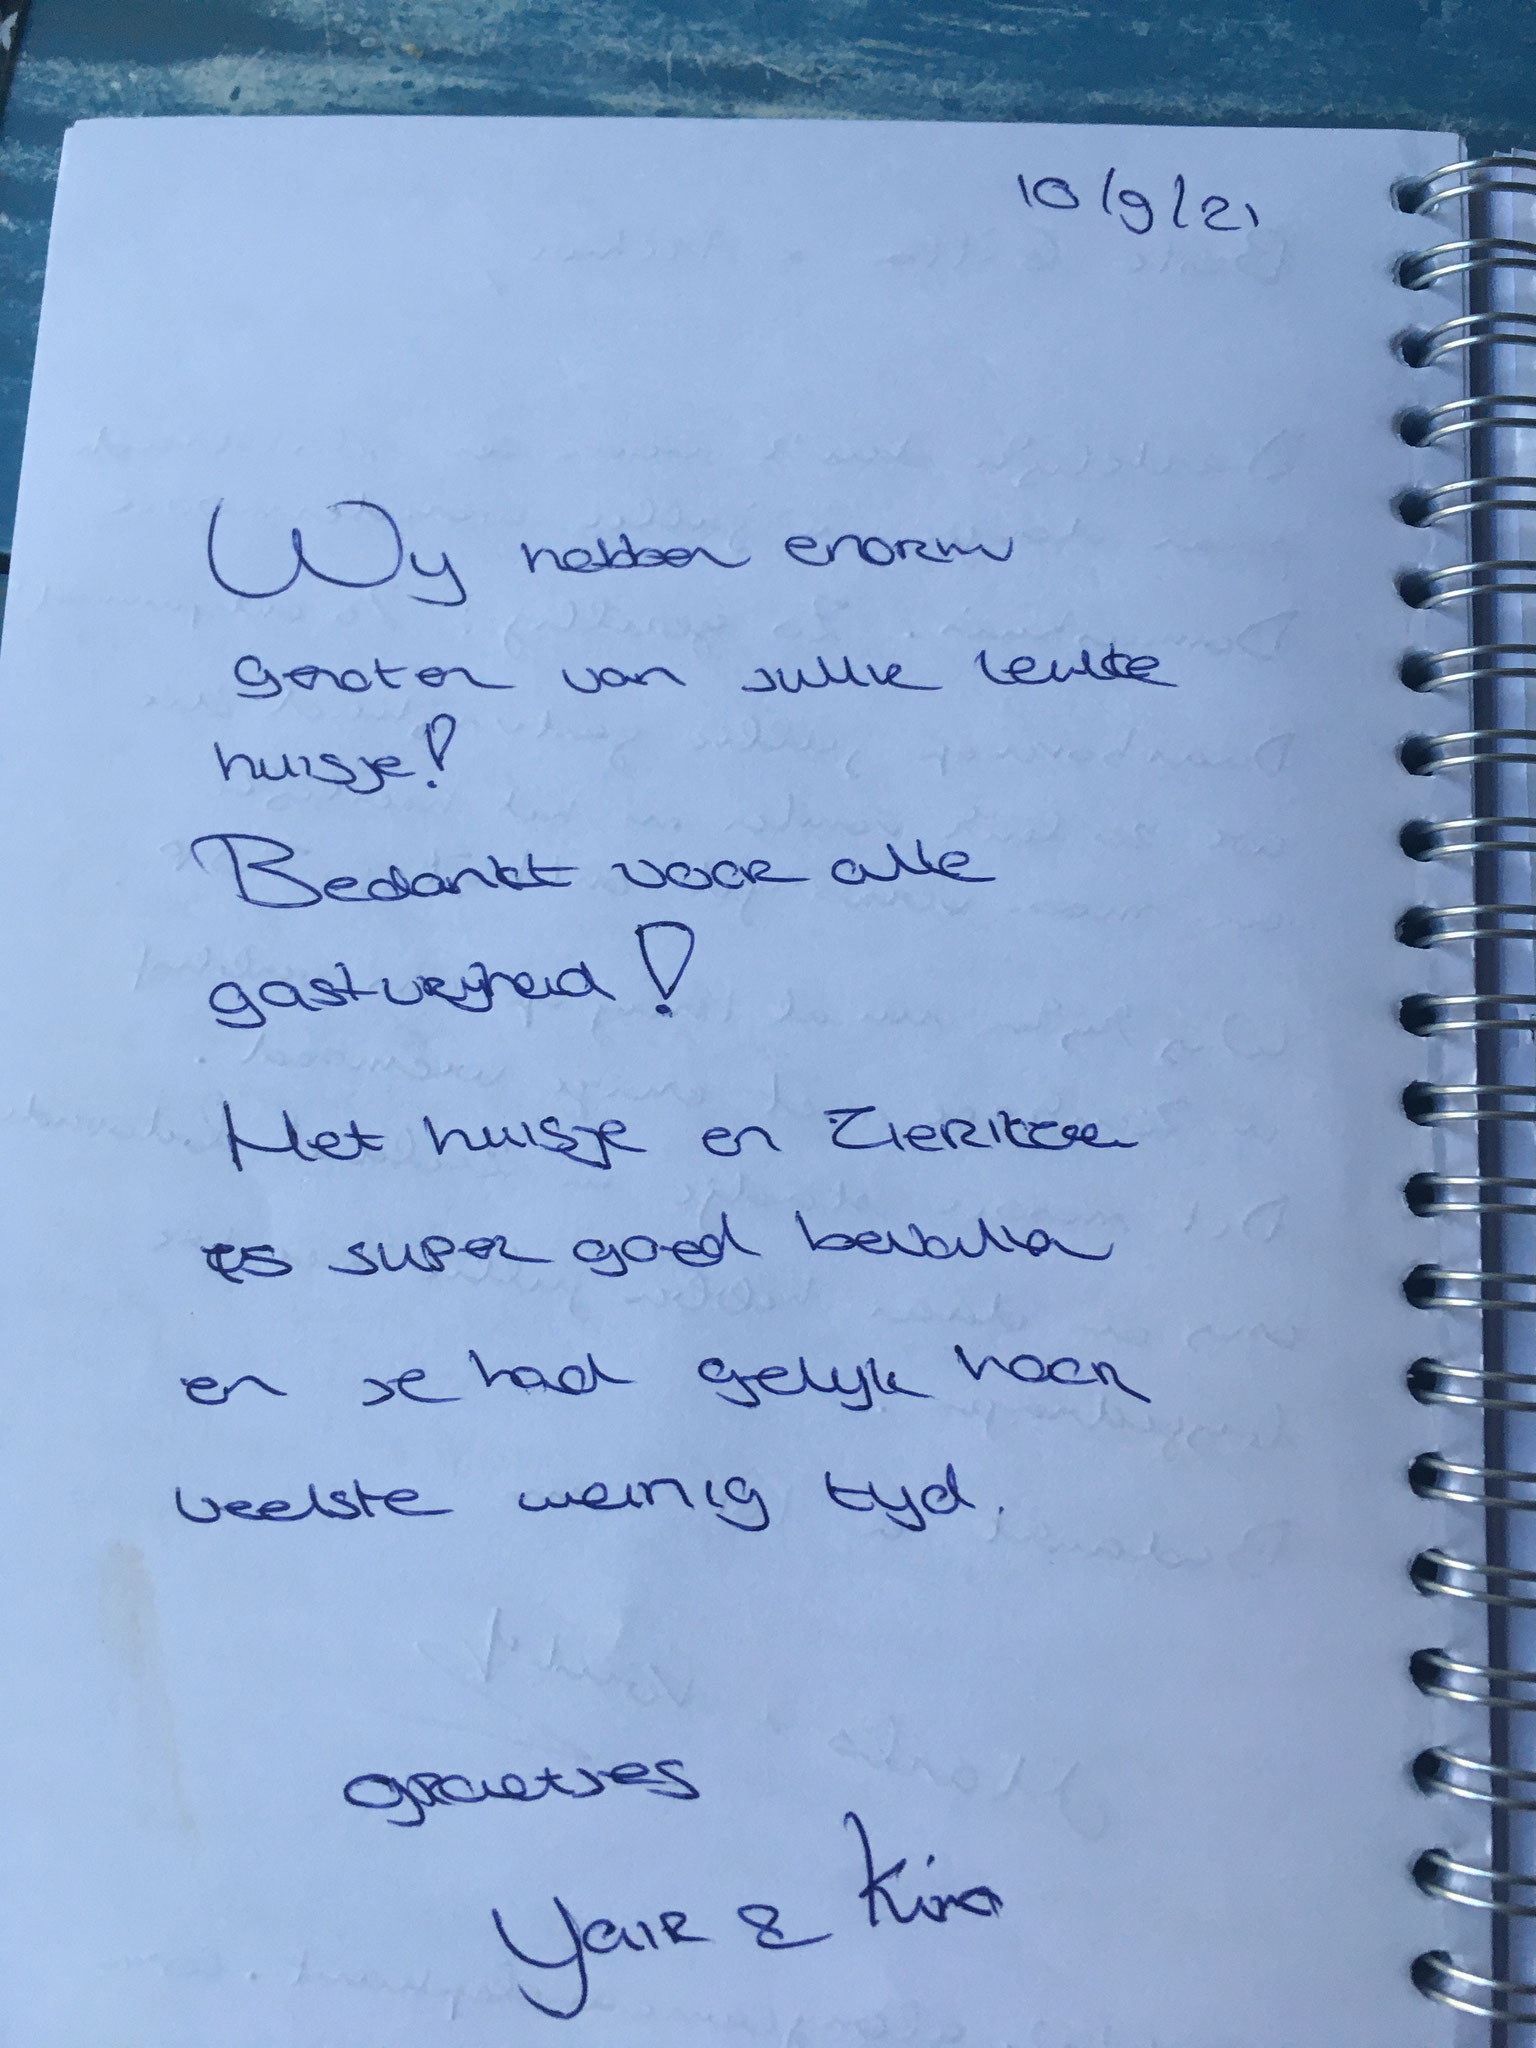 10/9/21
Wij hebben enorm
genoten van jullie leukke
huisje!
Bedankt voor alle
gastvrijheid!
Het huisje en Zierikzee
is super goed bevallen
en je had gelijk hoor
veelste weinig tijd.
groetjes
Yair & Kira